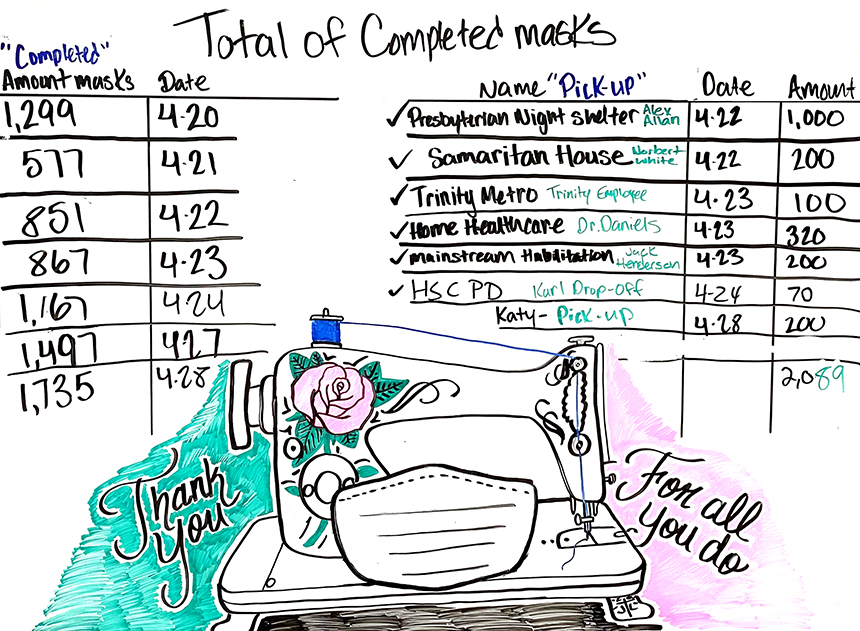 Total of Completed masks
"Completed"
Amount masks Date
1,299 4-20
577 4-21
851 4-22
867 4-23
1,167 4-24
1,497 4-27
1,735 4-28
Name "Pick-up" Date Amount
✓ Presbyterian Night Shelter Alex Allan 4-22 1,000
✓ Samaritan House Norbert White 4-22 200
✓ Trinity Metro Trinity Employee 4-23 100
✓ Home Healthcare Dr. Daniels 4-23 320
✓ mainstream Habilitation Jack Henderson 4-23 200
✓ HSC PD Karl Drop-off 4-24 70
Katy - Pick-up 4-28 200
2,089
Thank
You
For all
you do